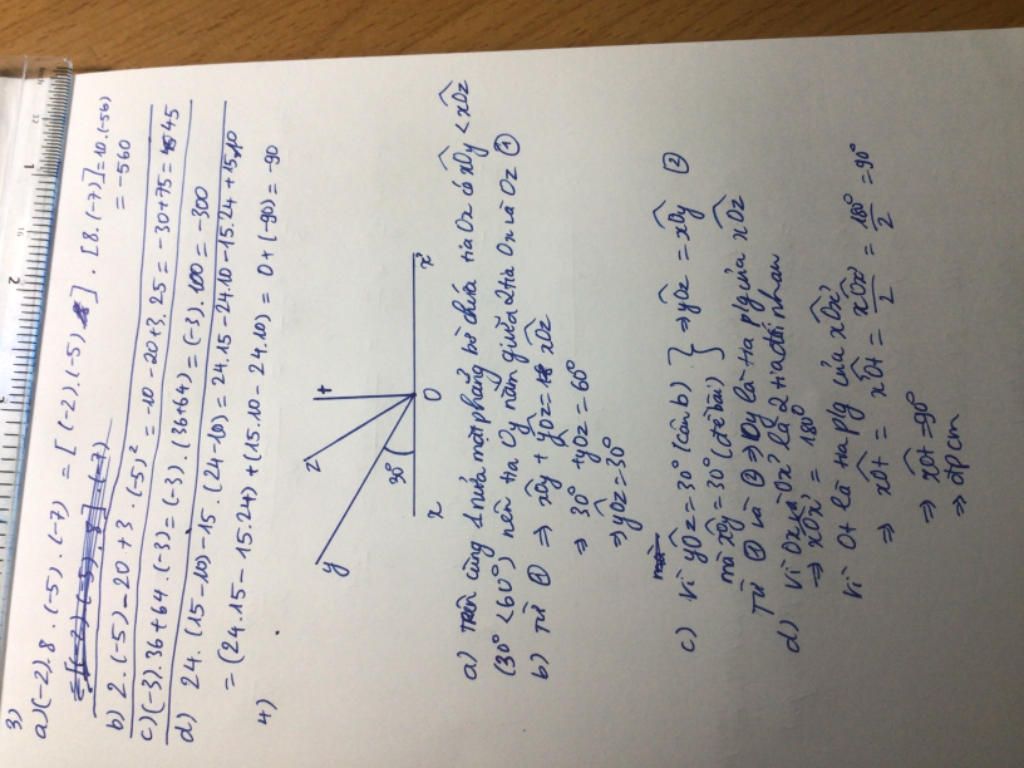 3)
a) (-2).8.(-5).(-7) = [(-2).(-5)].[8.(-7)] = 10.(-56)
= -560
b) 2.(-5)-20+3.(-5)² = -10-20+3.25 = -30+75 = 45
c) (-3).36+64.(-3) = (-3).(36+64) = (-3).100 = -300
d) 24.(15-10)-15.(24-10) = 24.15-24.10-15.24+15.10
= (24.15-15.24)+(15.10-24.10) = 0+(-90) = -90
4)
y z t
30°
x O x'
a) Trên cùng 1 nửa mặt phẳng bờ chứa tia Ox có xOy < xOz
(30° < 60°) nên tia Oy nằm giữa 2 tia Ox và Oz ①
b) Từ ① ⇒ xOy + yOz = xOz
⇒ 30° + yOz = 60°
⇒ yOz = 30°
c) Vì yOz = 30° (câu b) } ⇒ yOz = xOy ②
mà xOy = 30° (đề bài)
Từ ① và ② ⇒ Oy là tia p/g của xOz
d) Vì Ox và Ox' là 2 tia đối nhau
⇒ xOx' = 180°
Vì Ot là tia p/g của xOx'
⇒ xOt = x'Ot = xOx'/2 = 180°/2 = 90°
⇒ xOt = 90°
⇒ đpcm